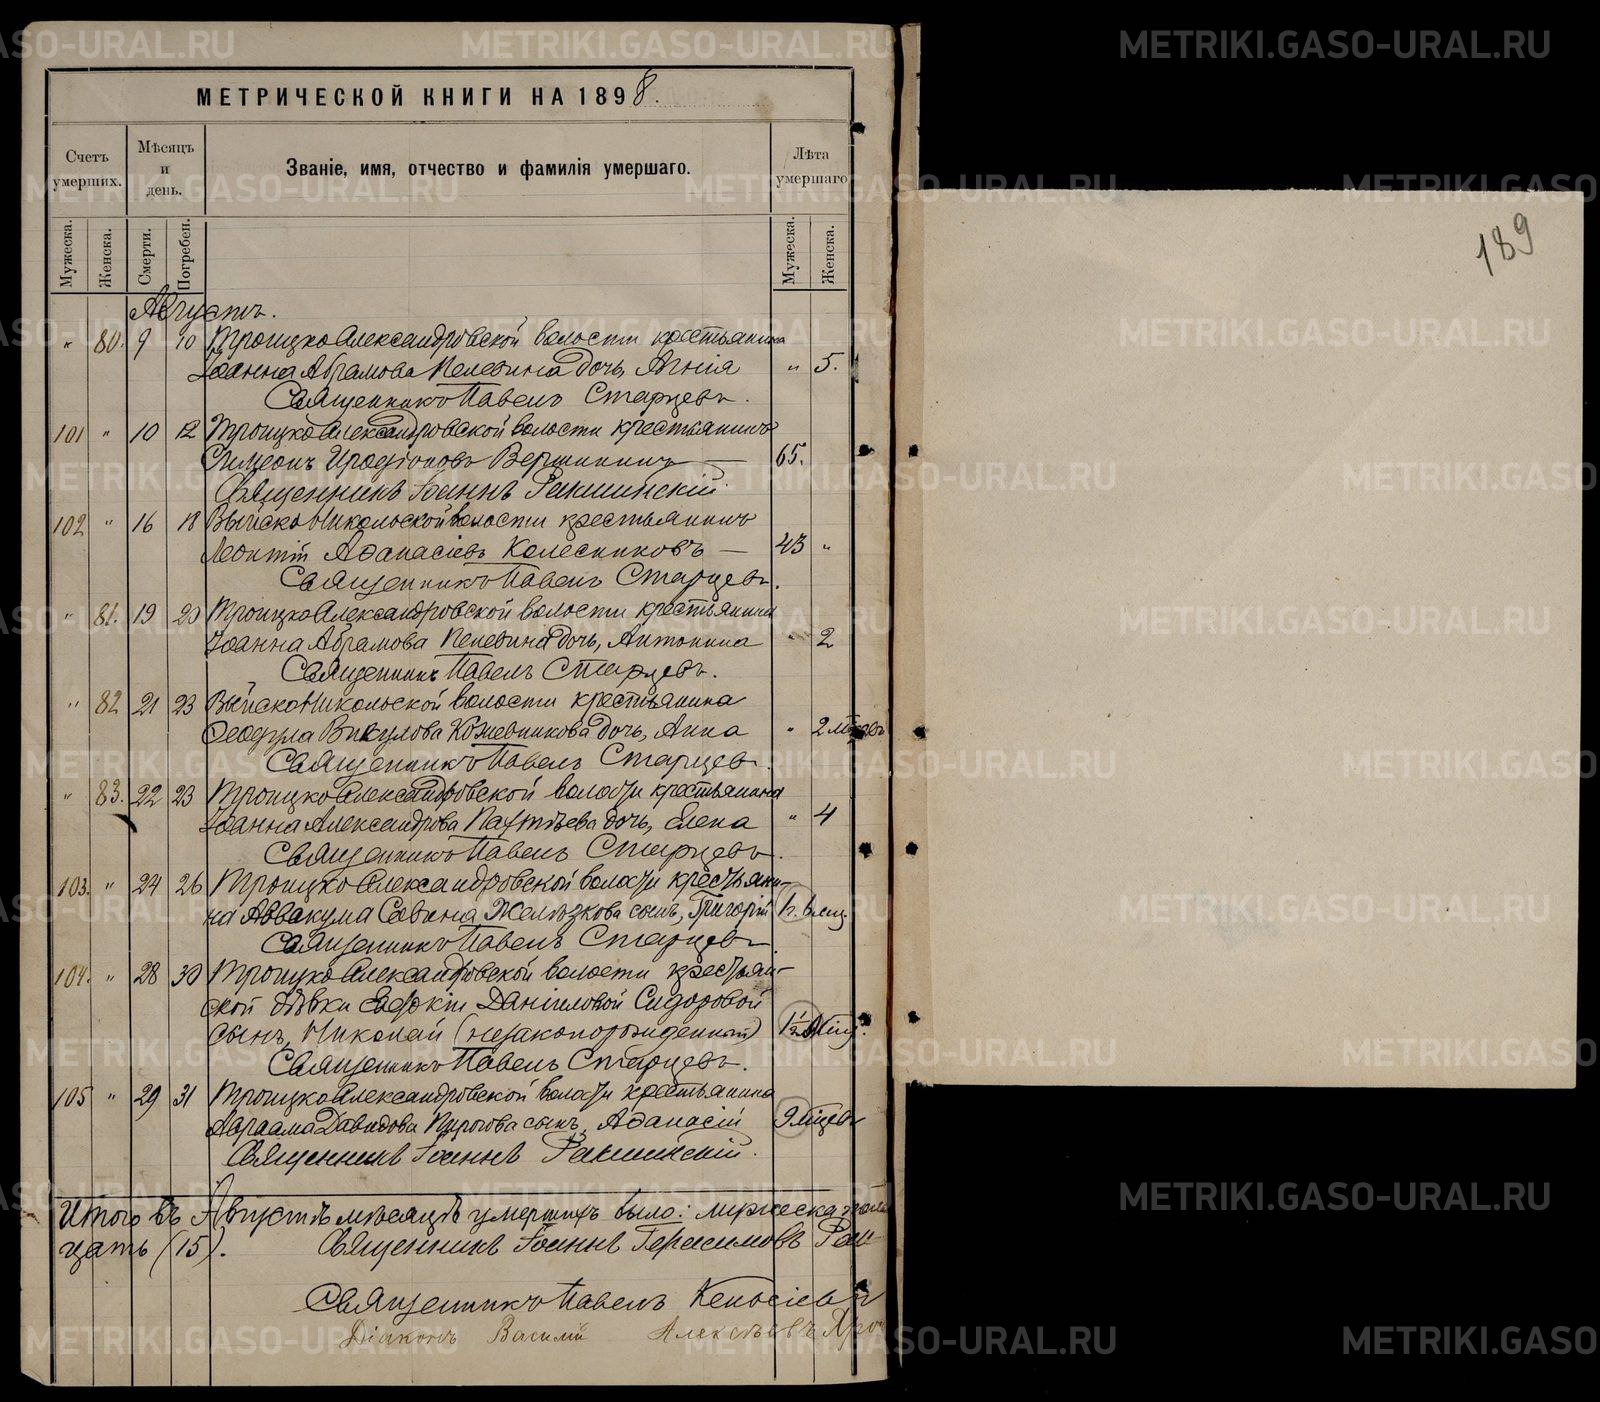 МЕТРИЧЕСКОЙ КНИГИ НА 1898.
Счетъ умершихъ.
Мѣсяцъ и день.
Званіе, имя, отчество и фамилія умершаго.
Лѣта умершаго
Мужеска.
Женска.
Смерти.
Погребен.
Мужеска.
Женска.
189
Августъ.
" 80. 9 10 Троицко Александровской волости крестьянина
Іоанна Абрамова Пелевина дочь, Агнія " 5.
Священникъ Павелъ Старцевъ.
101 " 10 12 Троицко Александровской волости крестьянинъ
Симеонъ Иродіоновъ Вершининъ — 65.
Священникъ Іоаннъ Ракшинскій.
102 " 16 18 Выйско Никольской волости крестьянинъ
Леонтій Аѳанасіевъ Колесниковъ — 43 "
Священникъ Павелъ Старцевъ.
" 81. 19 20 Троицко Александровской волости крестьянина
Іоанна Абрамова Пелевина дочь, Антонина " 2
Священникъ Павелъ Старцевъ.
" 82 21 23 Выйско Никольской волости крестьянина
Ѳеодула Викулова Кожевникова дочь, Анна " 2
Священникъ Павелъ Старцевъ.
" 83. 22 23 Троицко Александровской волости крестьянина
Іоанна Александрова дочь, Елена " 4
Священникъ Павелъ Старцевъ.
103. " 24 26 Троицко Александровской волости крестьяни-
на Аввакума Савина Желѣзкова сынъ, Григорій
Священникъ Павелъ Старцевъ
104. " 28 30 Троицко Александровской волости крестьян-
ской дѣвки Евдокіи Даніиловой Сидоровой
сынъ, Николай (незаконорожденный) 1½
Священникъ Павелъ Старцевъ.
105 " 29 31 Троицко Александровской волости крестьянина
Авраама Давидова Пирогова сынъ, Аѳанасій 9 мѣсцевъ
Священникъ Іоаннъ Ракшинскій.
Итого въ Августѣ мѣсяцѣ умершихъ было: мужеска пола
цать (15). Священникъ Іоаннъ Герасимовъ Рак
Священникъ Павелъ
Діаконъ Василій Алексѣевъ
METRIKI.GASO-URAL.RU